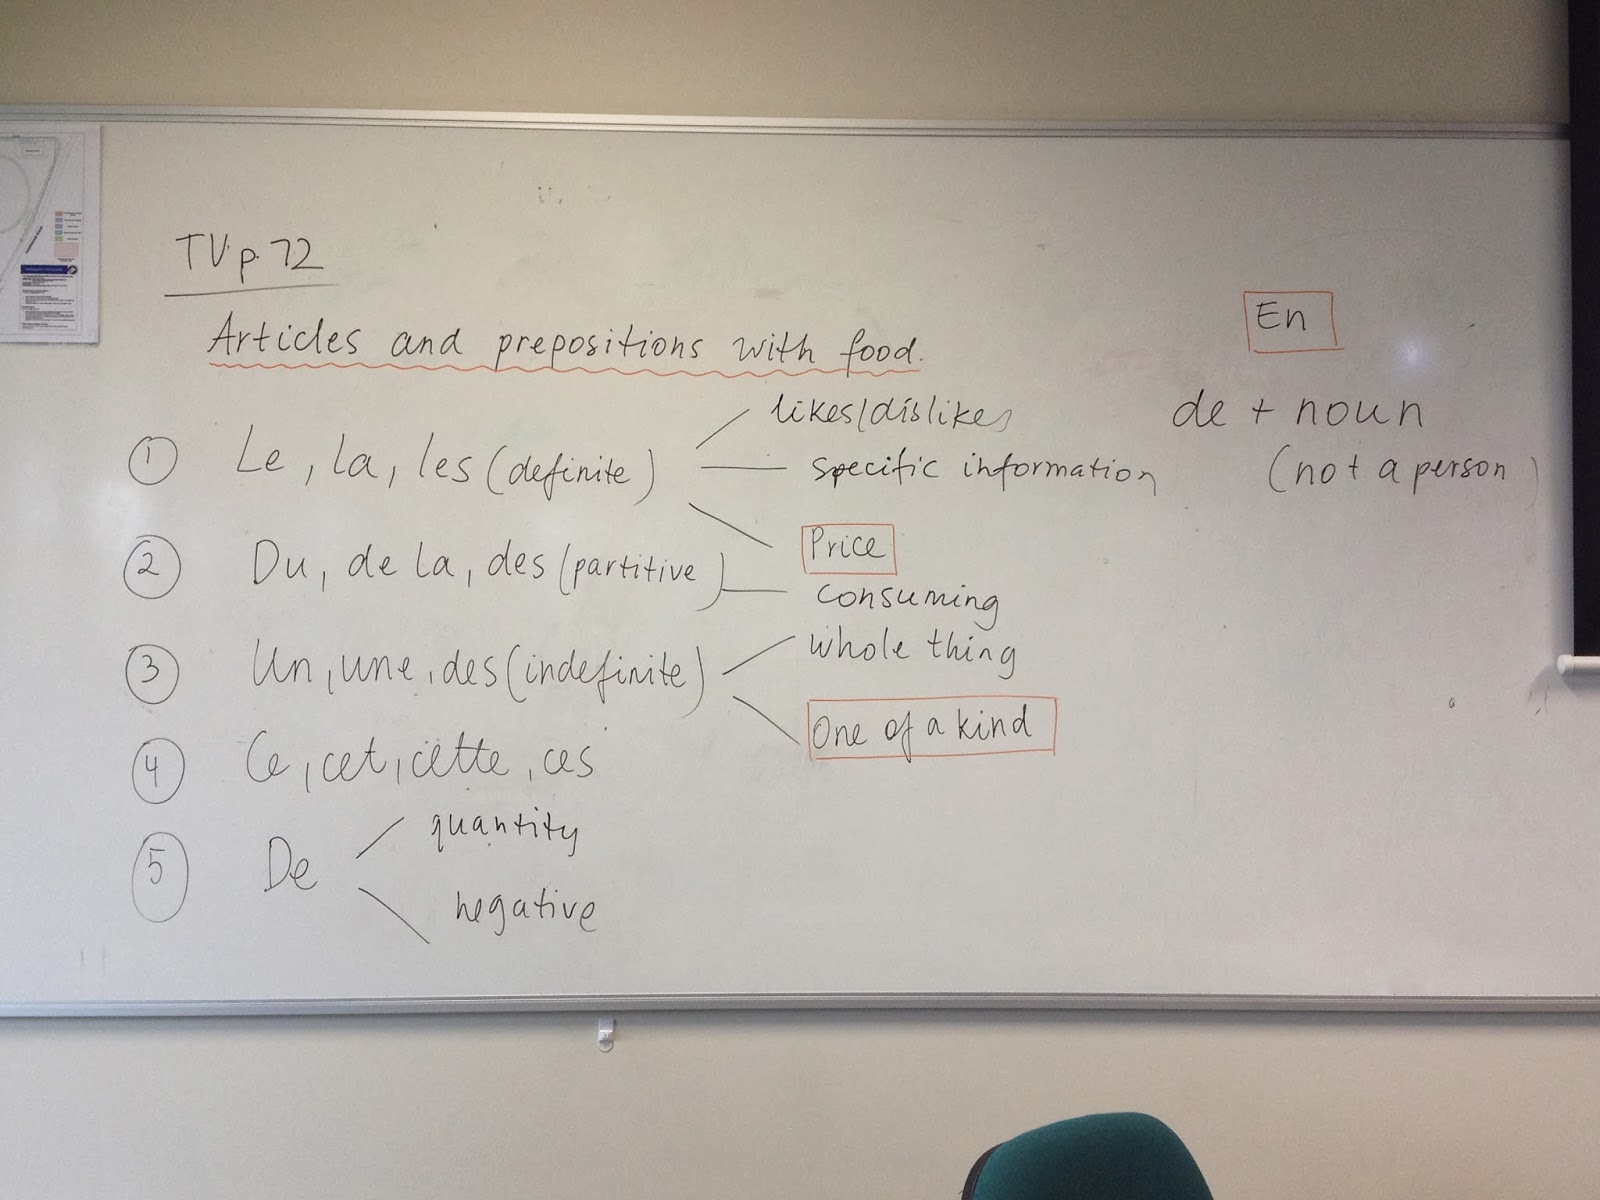 TV p. 72
Articles and prepositions with food.
① Le, la, les (definite)
likes/dislikes
specific information
Price
② Du, de la, des (partitive)
consuming
③ Un, une, des (indefinite)
whole thing
One of a kind
④ Ce, cet, cette, ces
⑤ De
quantity
negative
En
de + noun
(not a person)